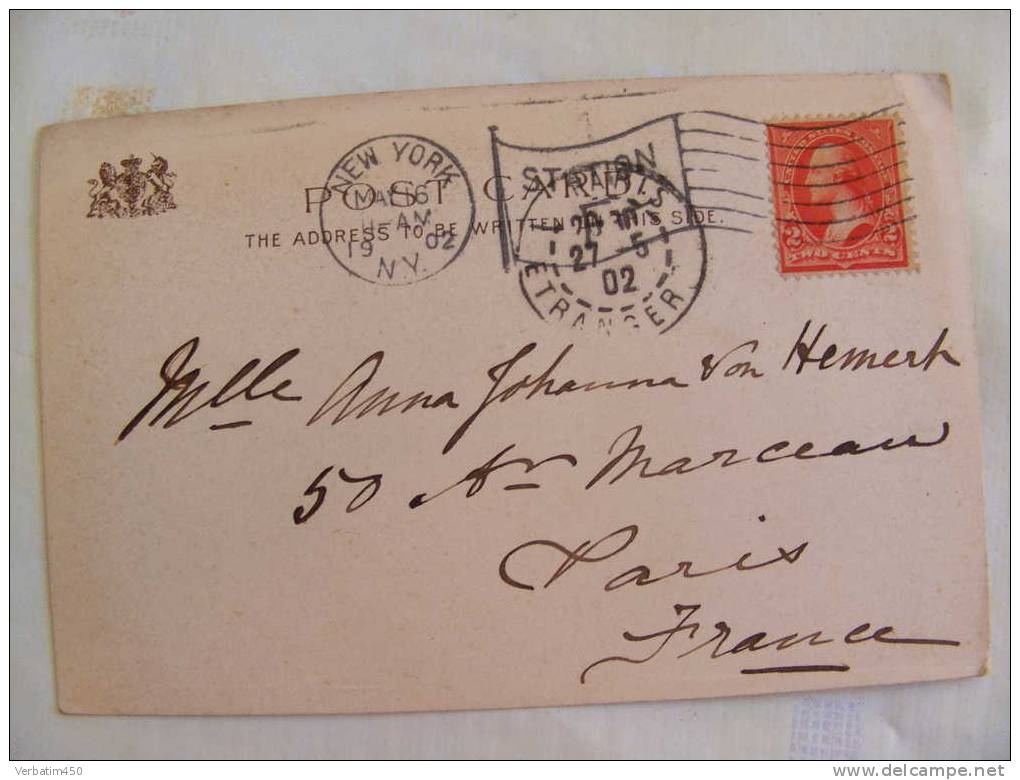 POST CARD.
THE ADDRESS TO BE WRITTEN ON THIS SIDE.
NEW YORK
11- AM
19 02
N.Y.
STATION
PARIS
27 5
02
ETRANGER
2 2
TWO CENTS
Mlle Anna Johanna von Hemert
50 Av Marceau
Paris
France
Verbatim450
delcampe.net